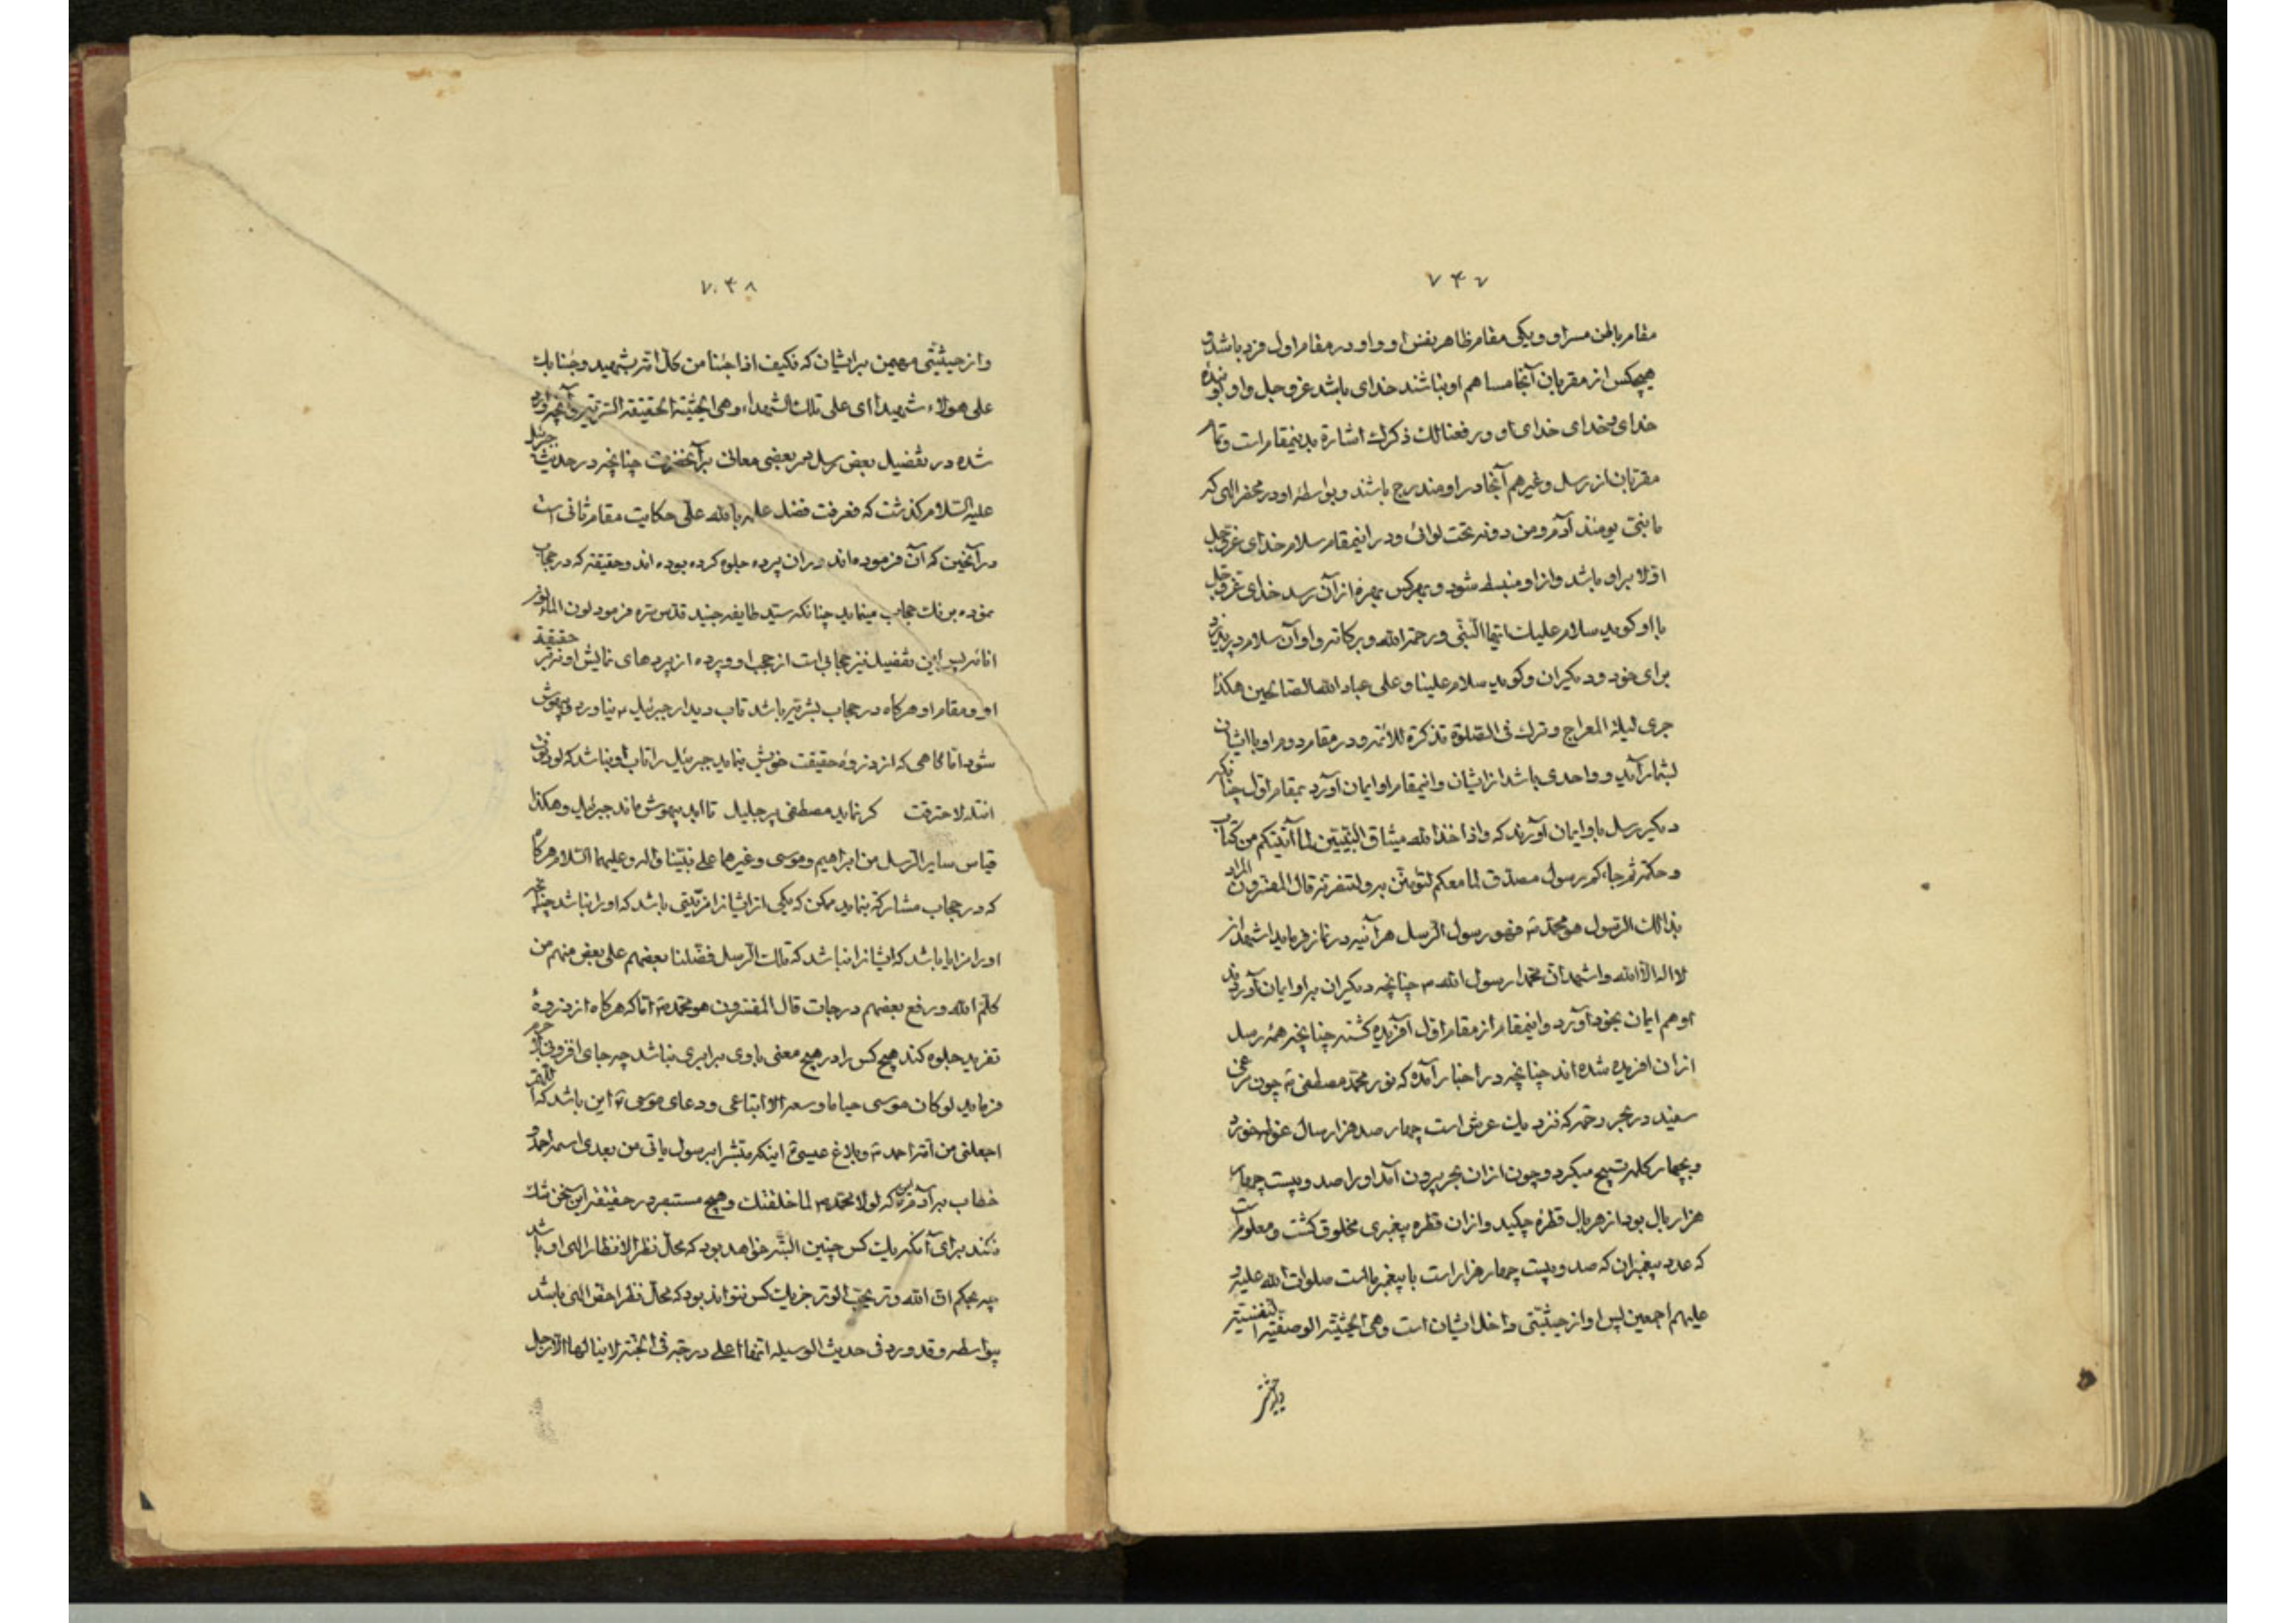 ۷۴۷
مقام باطن مر او و یکی مقام ظاهر بفس او و او در مقام اول فرد باشد و
هیچکس از مقربان آنجا مساهم او نباشند خدای باشد عز و جل و او بنده
خدای خدای او و رفعنا لك ذكرك اشارة بدینمقام است و تمام
مقربان از رسل و غیرهم آنجا در او مندرج باشند و بواسطه او در محفر الهی که
ما بنی یومئذ آدم و من دونه تحت لوائی و در اینمقام سلام خدای عز و جل
اولا بر او باشد و از او منبسط شود و بهر کس بهره از آن رسد خدای عز و جل
با او گوید سلام علیك ایها النبی و رحمة الله و برکاته و او آن سلام پذیرد
برای خود و دیگران و گوید سلام علینا و علی عباد الله الصالحین هکذا
جری لیلة المعراج و ترك فی الصلوة تذکرة للائمة و در مقام دوم او با ایشان
بشمار آید و واحدی باشد از ایشان و اینمقام او ایمان آورد بمقام اول چنانکه
دیگر رسل باو ایمان آورند که و اذ اخذ الله میثاق النبیین لما آتیتکم من کتاب
و حکمة ثم جاءکم رسول مصدق لما معکم لتؤمنن به و لتنصرنه قال المفسرون المراد
بذالك الرسول هو محمد ص فهو رسول الرسل هر آنیه در نماز فرماید اشهد ان
لا اله الا الله و اشهد ان محمدا رسول الله ص چنانچه دیگران بر او ایمان آورند
او هم ایمان بخود آورد و اینمقام از مقام اول آفریده گشته چنانچه همه رسل
از آن افریده شده اند چنانچه در اخبار آمده که نور محمد مصطفی ص چون مرغی
سفید در بحر رحمة که نزدیك عرش است چهار صد هزار سال غوطه خورد
و بچهار کلمه تسبیح میکرد و چون از ان بحر بیرون آمد او را صد و بیست چهار
هزار بال بود از هر بال قطره چکید و از ان قطره پیغمبری مخلوق گشت و معلومست
که عدد پیغمبران که صد و بیست چهار هزار است با پیغمبر ماست صلوات الله علیه و
علیهم اجمعین پس او از حیثیتی داخل ایشان است و هی الحیثیة الوصفیة النفسیة
و از حیثیتی
۷۴۸
و از حیثیتی مهیمن بر ایشان که فکیف اذا جئنا من کل امة بشهید و جئنا بك
علی هولاء شهیدا ای علی تلك الشهداء و هی الحیثیة الحقیقة السریة و آنچه وارد
شده در تفضیل بعض رسل در بعضی معانی بر آنحضرت چنانچه در حدیث جبرئیل
علیه السلام گذشت که فعرفت فضل علمه بالله علی حکایت مقام ثانی است
در آنحین که آن فرموده اند در ان پرده جلوه کرده بوده اند و حقیقة که در حجاب
نموده برنك حجاب مینماید چنانکه سید طایفه جنید قدس سره فرمود لون الماء لون
انائه پس این تفضیل نیز حجابی است از حجب او و پرده از پرده های نمایش او نه بر حقیقة
او و مقام او هر گاه در حجاب بشریة باشد تاب دیدار جبرئیل ع نیاورد و بیهوش
شود اما گاهی که از ذروه حقیقت خویش بنماید جبرئیل را تاب او نباشد که لو دنوت
انملة لاحترقت گر نماید مصطفی پر جلیل تا ابد بیهوش ماند جبرئیل و هکذا
قیاس سایر الرسل من ابراهیم و موسی و غیرهما علی نبینا و اله و علیهما السلام هر گاه
که در حجاب مشارکة بنماید ممکن که یکی از ایشانرا مزیتی باشد که او را نباشد چنانچه
او را مزایا باشد که ایشانرا نباشد که تلك الرسل فضلنا بعضهم علی بعض منهم من
کلم الله و رفع بعضهم درجات قال المفسرون هو محمد ص اما که هر گاه از ذروه
تفرید جلوه کند هیچ کس را در هیچ معنی با وی برابری نباشد چه جای افزونی
فرماید لو کان موسی حیا ما وسعه الا اتباعی و دعای موسی ع این باشد که اللهم
اجعلنی من امة احمد ص و بلاغ عیسی ع اینکه مبشرا برسول یاتی من بعدی اسمه احمد و
خطاب بر آدم این که لولا محمد ص لما خلقتك و هیچ مستبصر در حقیقة این سخن شك
نکند برای آنکه یك کس چنین البته خواهد بود که محال نظر الانظار الهی او باشد
چه بحکم ان الله وتر یحب الوتر جز یك کس نتواند بود که محال نظر احقی الهی باشد
بواسطه و قد ورد فی حدیث الوسیله انها اعلی درجة فی الجنة لا ینالها الا رجل